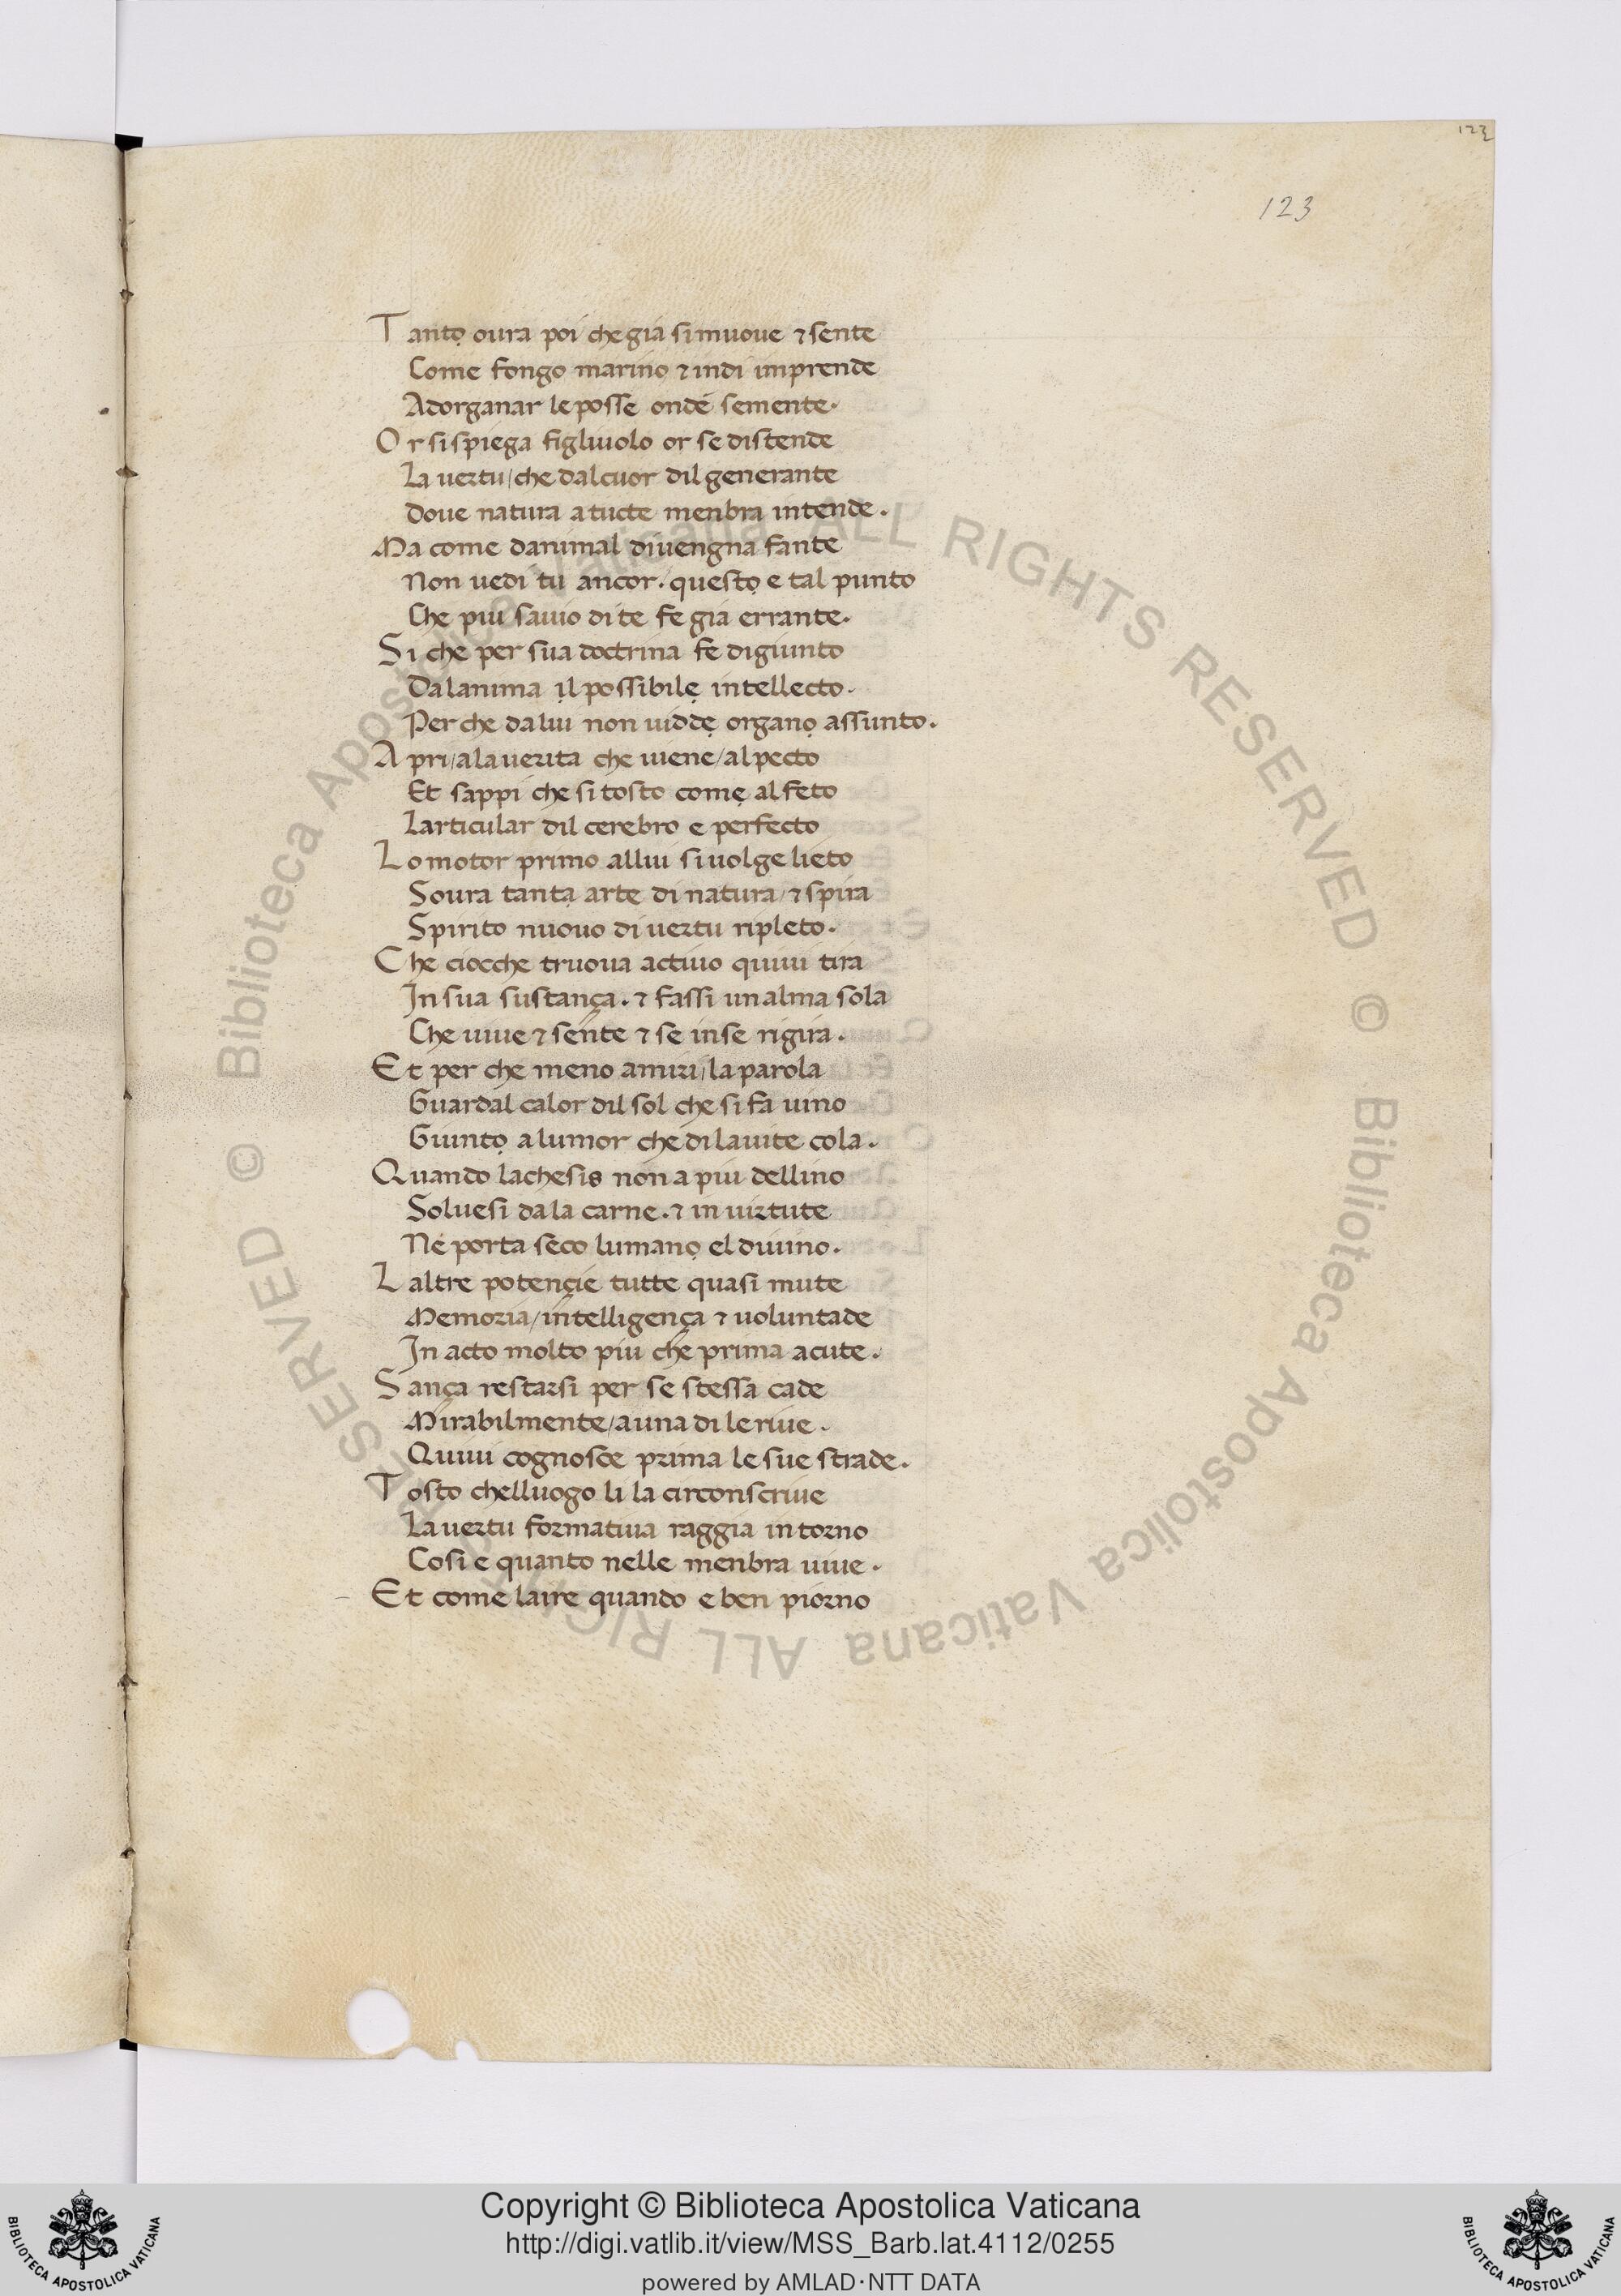 123
123
Tantọ oura poi che gia si muoue ⁊ sente
Come fongo marino ⁊ indi imprende
Ad organar le posse onde semente.
Or si spiega figliuolo or se distende
La uertu/che dal cuor dil generante
Doue natura a tucte menbra intende.
Ma come danimal diuengna fante
Non uedi tu ancor. questọ e tal punto
Che piu sauio di te fe gia errante.
Si che per sua doctrina fe digiunto
Dalanima ịl possibilẹ intellecto.
Per che da lui non uiddẹ organọ assunto.
Apri/ala uerita che uiene/al pecto
Et sappi che si tosto comẹ al feto
Larticular dil cerebro e perfecto
Lo motor primo allui si uolge lieto
Soura tantạ arte di natura/⁊ spira
Spirito nuouo di uertu ripleto.
Che ciocche truoua actiuo quiui tira
In sua sustança. ⁊ fassi unalma sola
Che uiue ⁊ sente ⁊ se in se rigira.
Et per che meno amiri/la parola
Guardal calor dil sol che si fa uino
Giuntọ alumor che dila uite cola.
Quando lachesis non a piu dellino
Soluesi dala carne. ⁊ in uirtute
Ne porta seco lumanọ el diuino.
Laltre potençie tutte quasi mute
Memoria/intelligença ⁊ uoluntade
In acto molto piu che prima acute.
Sança restarsi per se stessa cade
Mirabilmente/a una di le riue.
Quiui cognosce prima le sue strade.
Tosto chelluogo li la circonscriue
La uertu formatiua raggia intorno
Cosi e quanto nelle menbra uiue.
Et come laire quando e ben piorno
© Biblioteca Apostolica Vaticana ALL RIGHTS RESERVED
© Biblioteca Apostolica Vaticana ALL RIGHTS RESERVED
Copyright © Biblioteca Apostolica Vaticana
http://digi.vatlib.it/view/MSS_Barb.lat.4112/0255
powered by AMLAD·NTT DATA
BIBLIOTECA APOSTOLICA VATICANA
BIBLIOTECA APOSTOLICA VATICANA